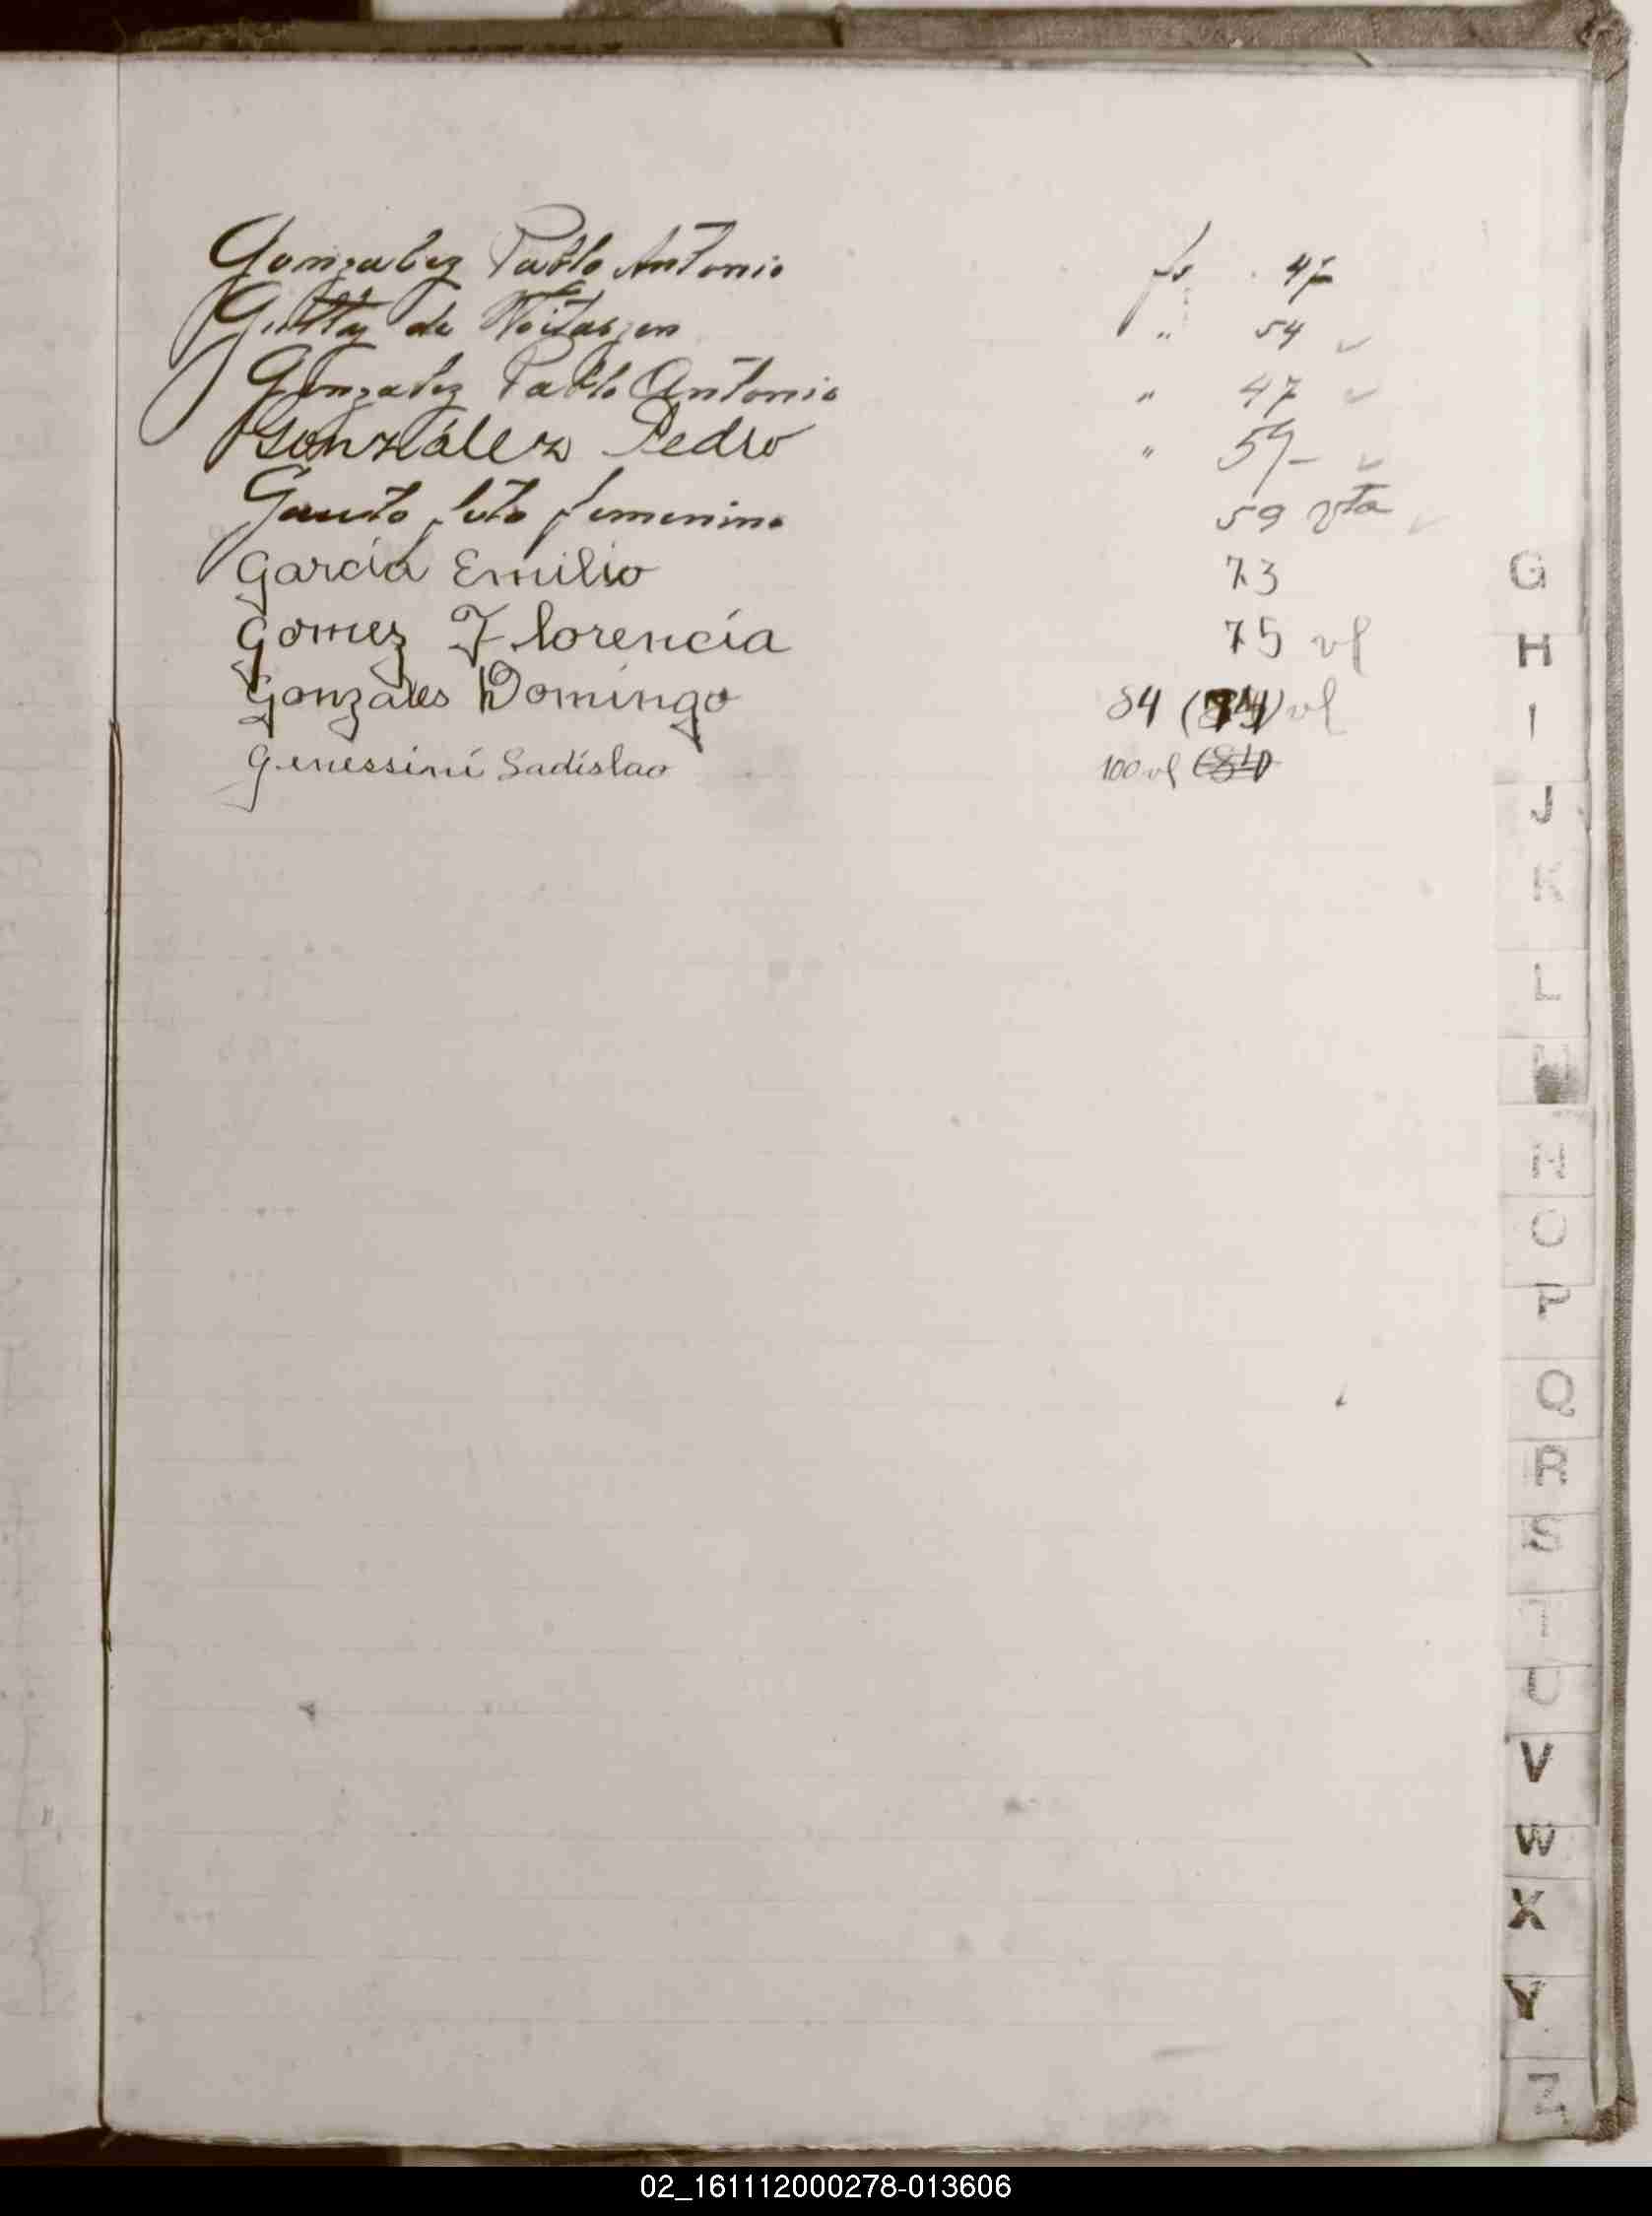 Gonzalez Pablo Antonio fs. 47
de 〃 54 ✓
Gonzalez Pablo Antonio 〃 47 ✓
González Pedro 〃 57- ✓
Gauto feto femenino 59 vta ✓
García Emilio 73
Gomez Florencia 75 vl
Gonzales Domingo 84 vl
Genessini Ladislao 100 vl
G
H
I
J
K
L
M
N
O
P
Q
R
S
T
U
V
W
X
Y
Z
02_161112000278-013606